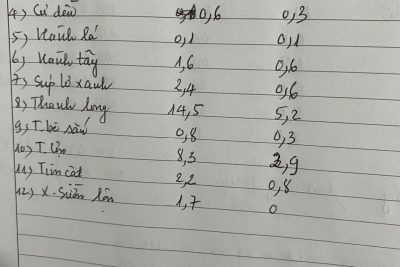 4) Củ dền 0,6 0,3
5) Hành lá 0,1 0,1
6) Hành tây 1,6 0,6
7) Súp lơ xanh 2,4 0,6
8) Thanh long 14,5 5,2
9) T. bò 0,8 0,3
10) T. lợn 8,3 2,9
11) Tim cật 2,2 0,8
12) X. Sườn lợn 1,7 0